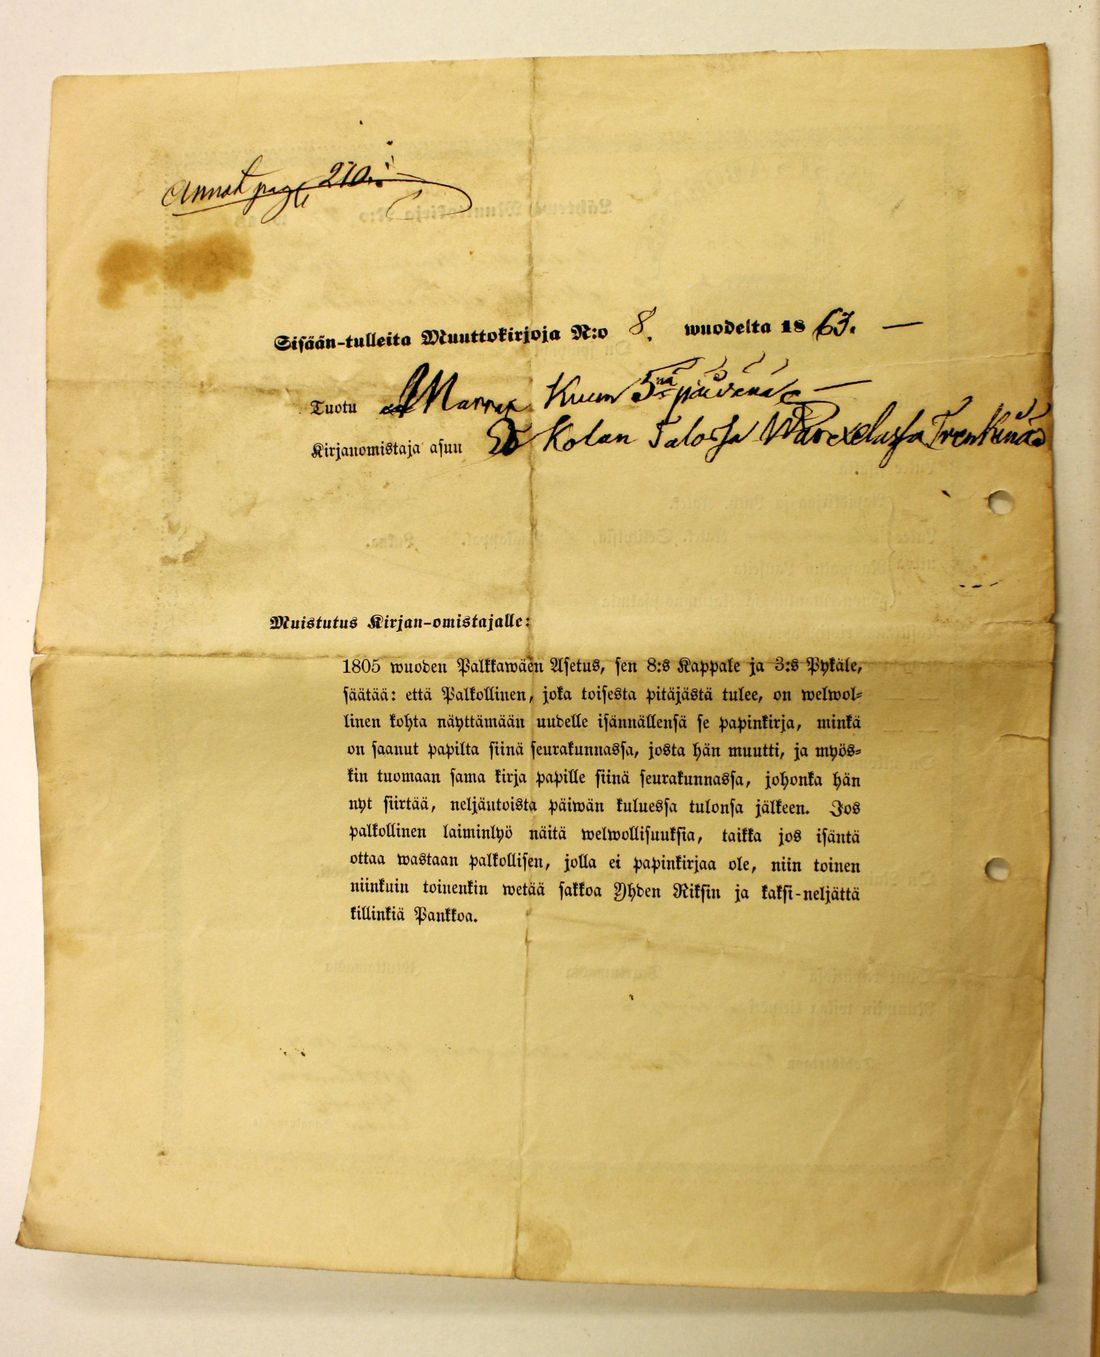 Annot. pag. 210.
Sisään-tulleita Muuttokirjoja N:o 8. wuodelta 1863. —
Tuotu Marras Kuun 5nä päivänä —
Kirjanomistaja asuu Kolan Talossa
Muistutus Kirjan-omistajalle:
1805 wuoden Palkkawäen Asetus, sen 8:s Kappale ja 3:s Pykäle,
säätää: että Palkollinen, joka toisesta pitäjästä tulee, on welwol-
linen kohta näyttämään uudelle isännällensä se papinkirja, minkä
on saanut papilta siinä seurakunnassa, josta hän muutti, ja myös-
kin tuomaan sama kirja papille siinä seurakunnassa, johonka hän
nyt siirtää, neljäntoista päiwän kuluessa tulonsa jälkeen. Jos
palkollinen laiminlyö näitä welwollisuuksia, taikka jos isäntä
ottaa wastaan palkollisen, jolla ei papinkirjaa ole, niin toinen
niinkuin toinenkin wetää sakkoa Yhden Riksin ja kaksi-neljättä
killinkiä Pankkoa.